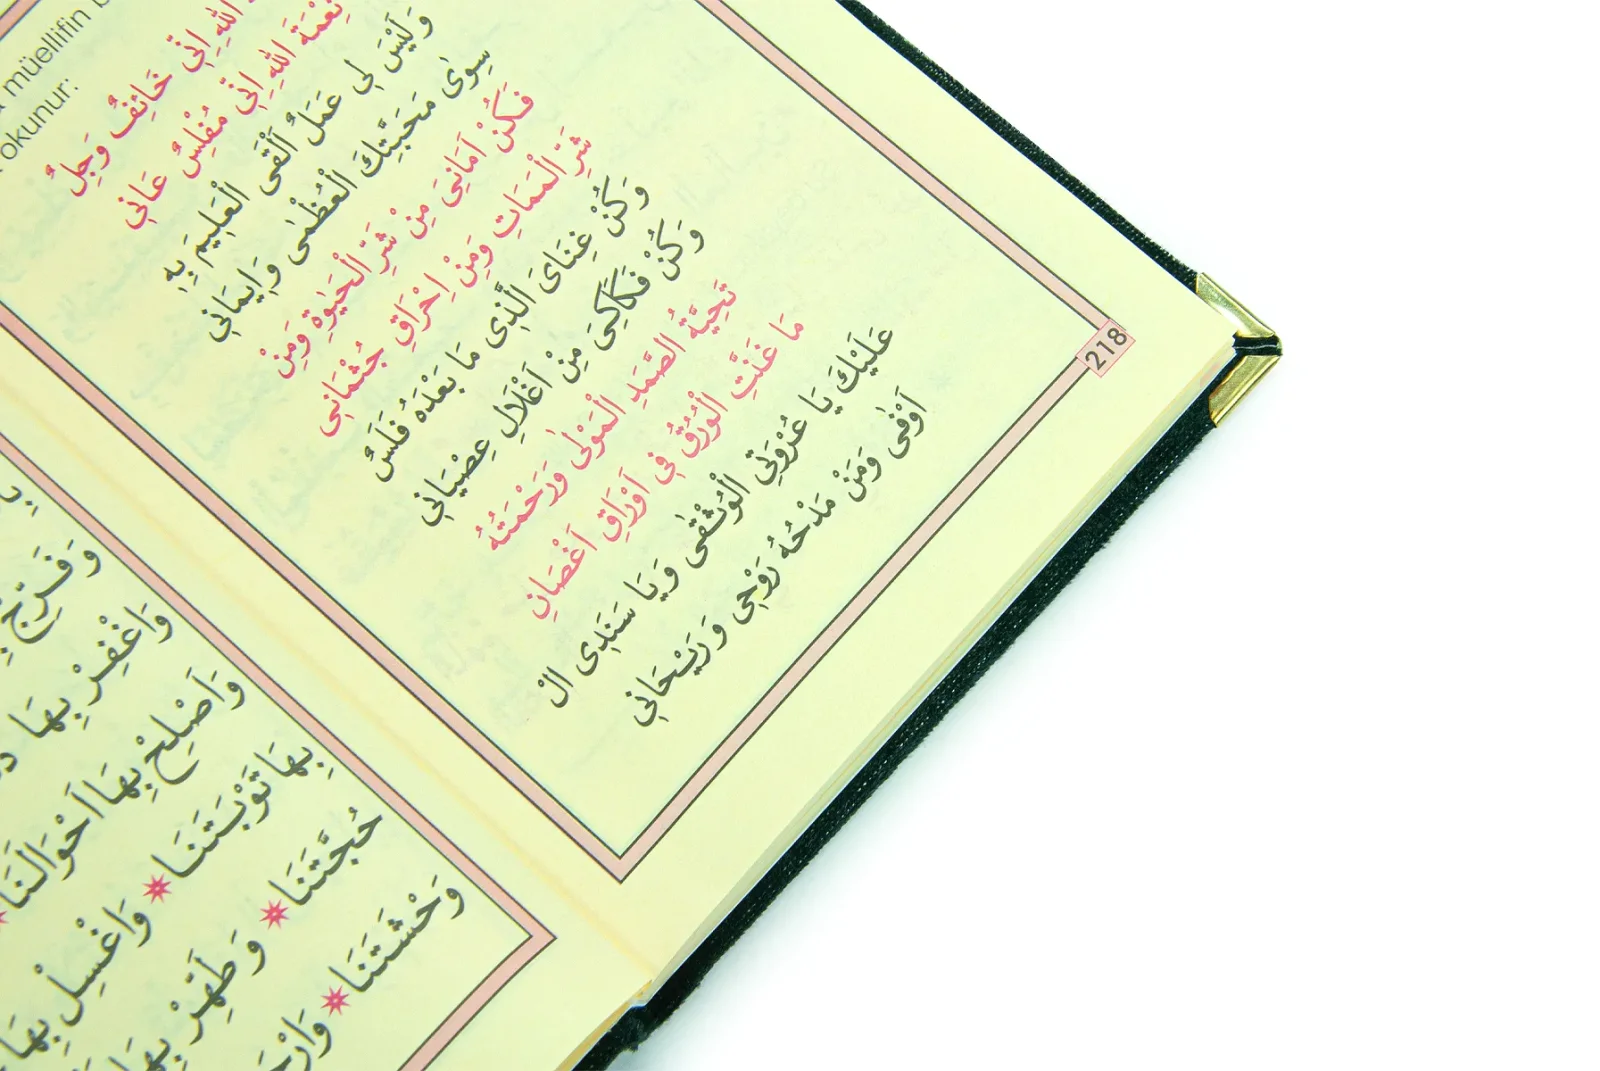 müellifin
okunur:
اللهِ اِنِّي خَائِفٌ وَجِلٌ
نِعْمَةَ اللهِ اِنِّي مُفْلِسٌ عَانِي
وَلَيْسَ لِي عَمَلٌ اَلْقَى الْعَلِيمَ بِهِ
سِوٰى مَحَبَّتِكَ الْعُظْمٰى وَاِيمَانِي
فَكُنْ اَمَانِيَ مِنْ شَرِّ الْحَيٰوةِ وَمِنْ
شَرِّ الْمَمَاتِ وَمِنْ اِحْرَاقِ جُثْمَانِي
وَكُنْ غِنَاىَ الَّذِى مَا بَعْدَهُ فَلَسٌ
وَكُنْ فَكَاكِىَ مِنْ اَغْلَالِ عِصْيَانِي
تَحِيَّةُ الصَّمَدِ الْمَوْلٰى وَرَحْمَتُهُ
مَا غَنَّتِ الْوُرْقُ فِي اَوْرَاقِ اَغْصَانِ
عَلَيْكَ يَا عُرْوَتِي الْوُثْقٰى وَيَا سَنَدِى الْ
اَوْفٰى وَمَنْ مَدْحُهُ رَوْحِى وَرَيْحَانِي
218
وَفَرِّجْ
وَاغْفِرْ بِهَا
وَاَصْلِحْ بِهَا اَحْوَالَنَا
بِهَا تَوْبَتَنَا ✷ وَاغْسِلْ بِهَا
حُجَّتَنَا ✷ وَطَهِّرْ بِهَا
وَحْشَتَنَا ✷